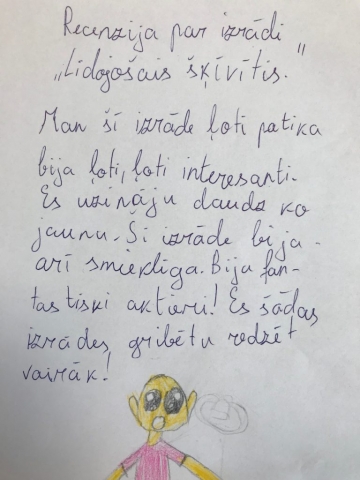 Recenzija par izrādi
„Lidojošais šķīvītis."
Man šī izrāde ļoti patika
bija ļoti, ļoti interesanti.
Es uzināju daudz ko
jaunu. Šī izrāde bija
arī smieklīga. Bija fan-
tastiski aktieri! Es šādas
izrādes gribētu redzēt
vairāk!